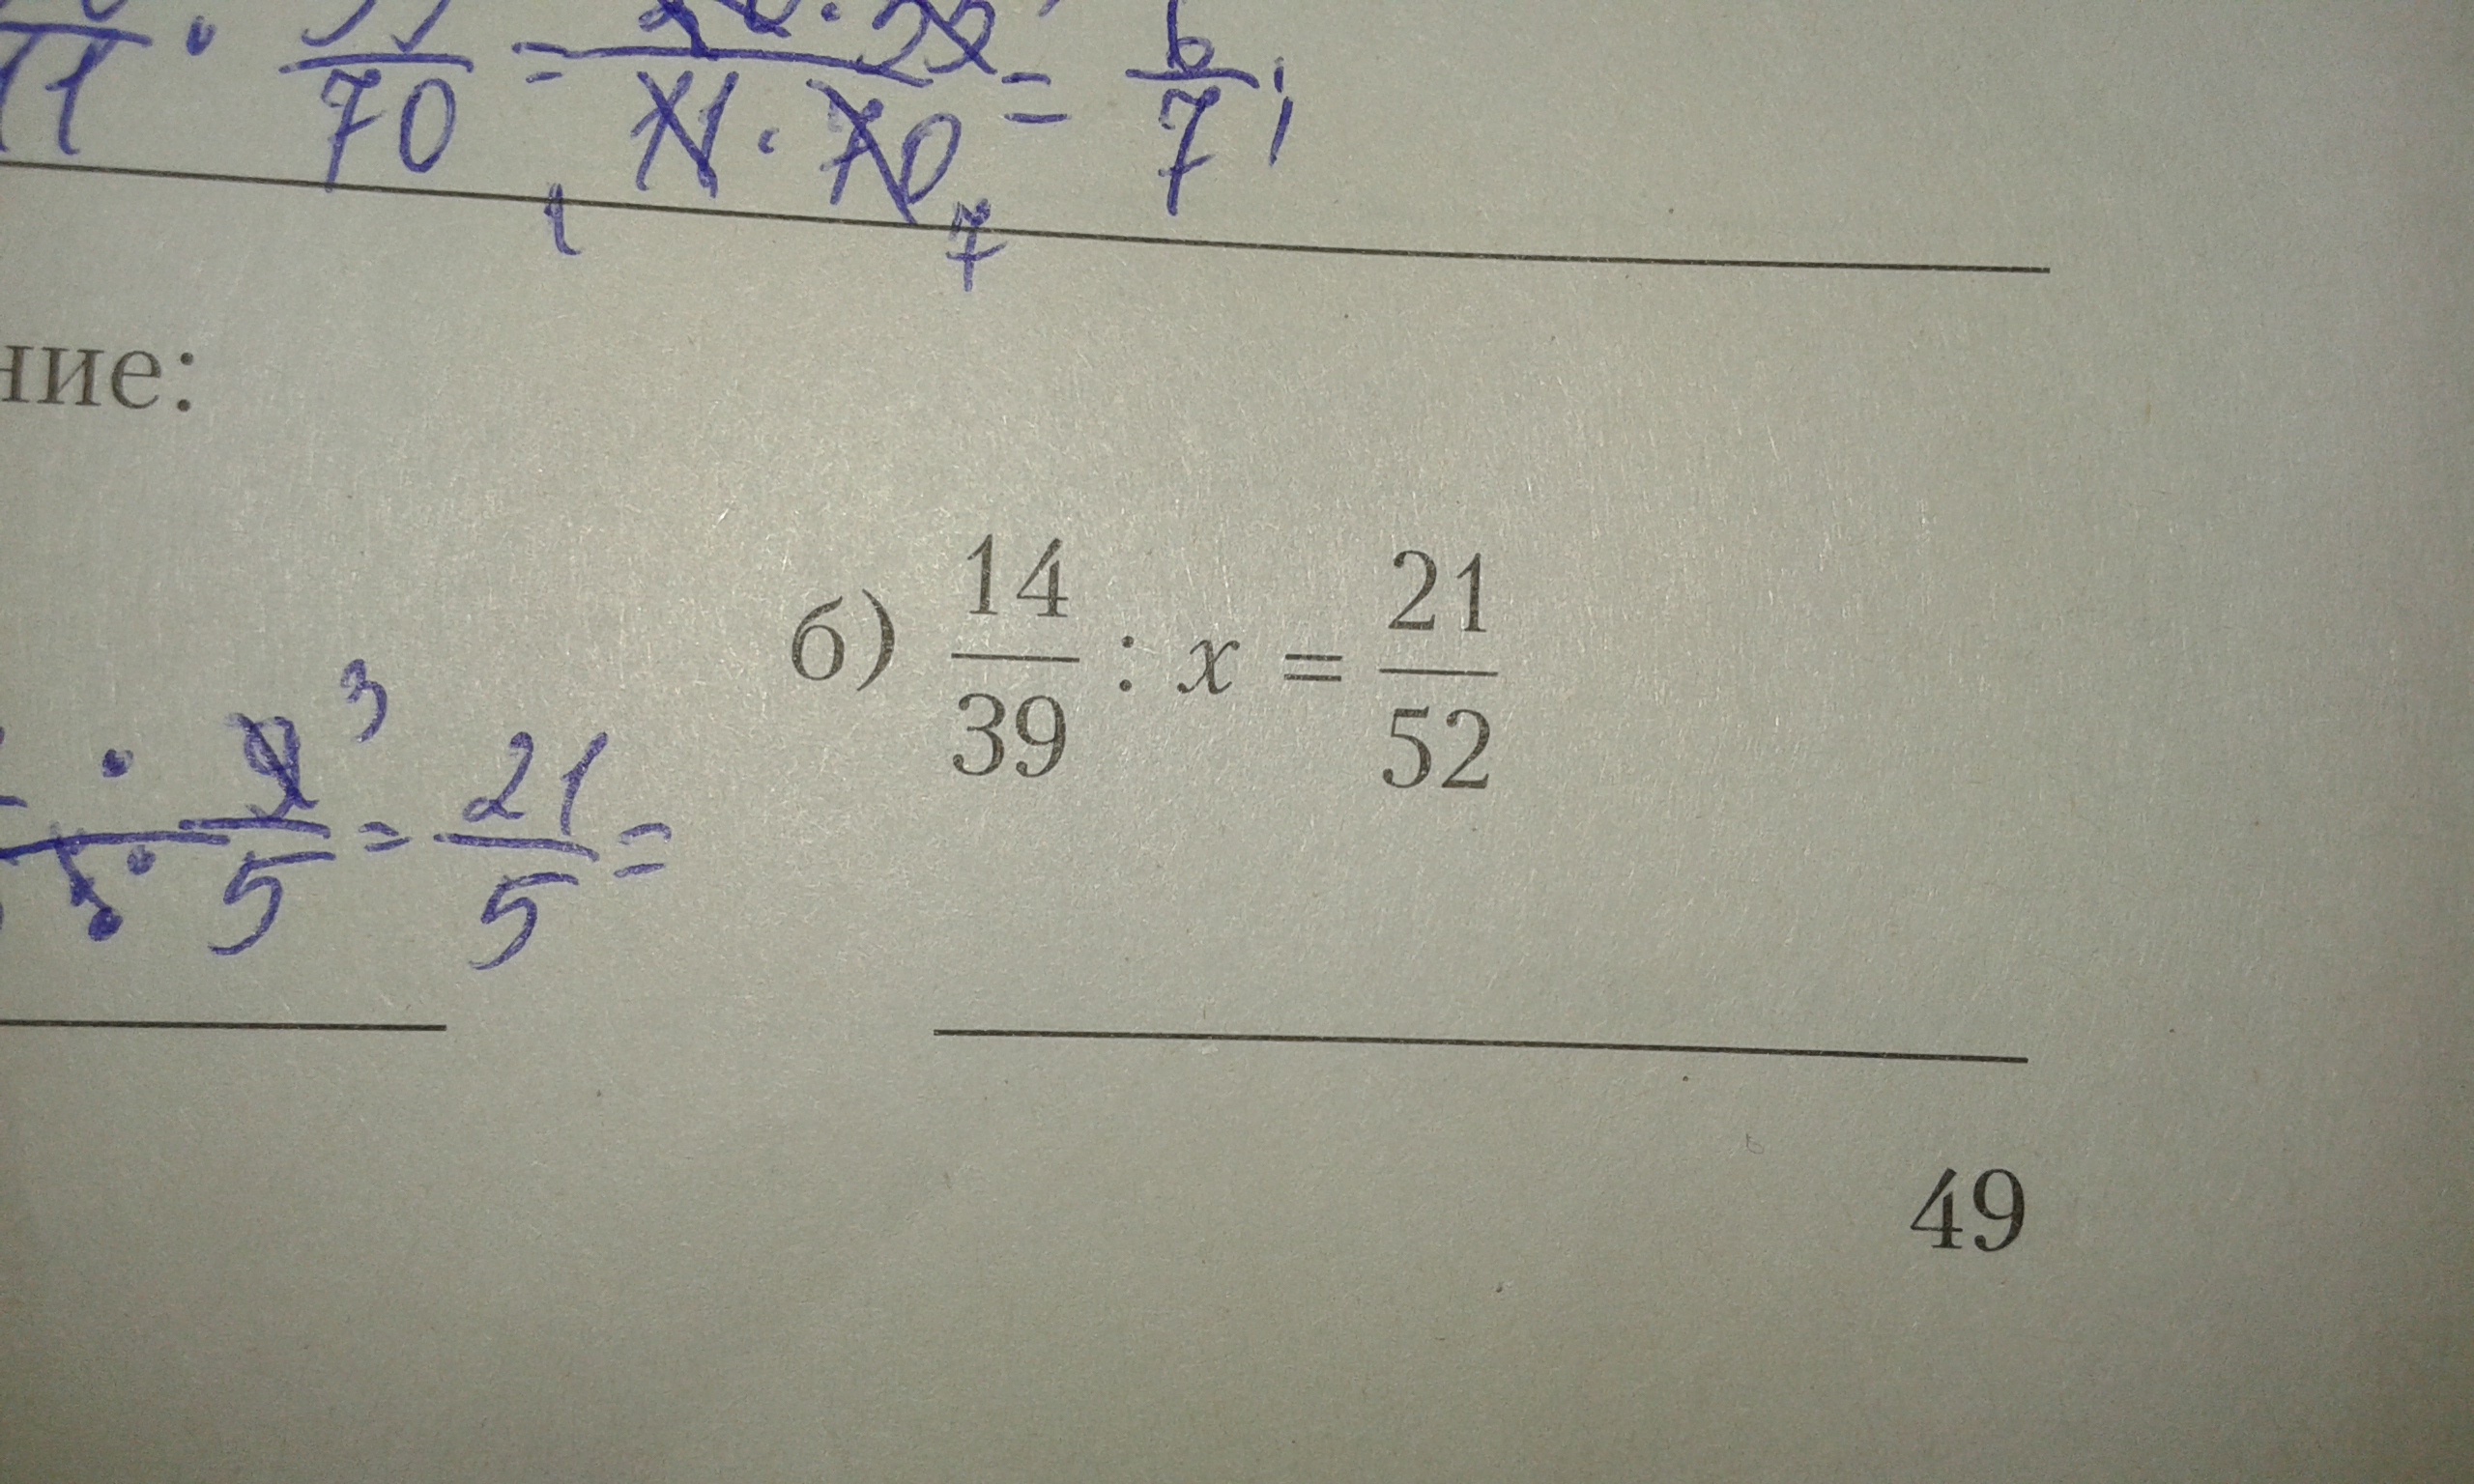 11 · 70 = 11 · 70 = 6/7;
1 7
ние:
б) 14/39 : x = 21/52
3
· 9/5 = 21/5 =
49